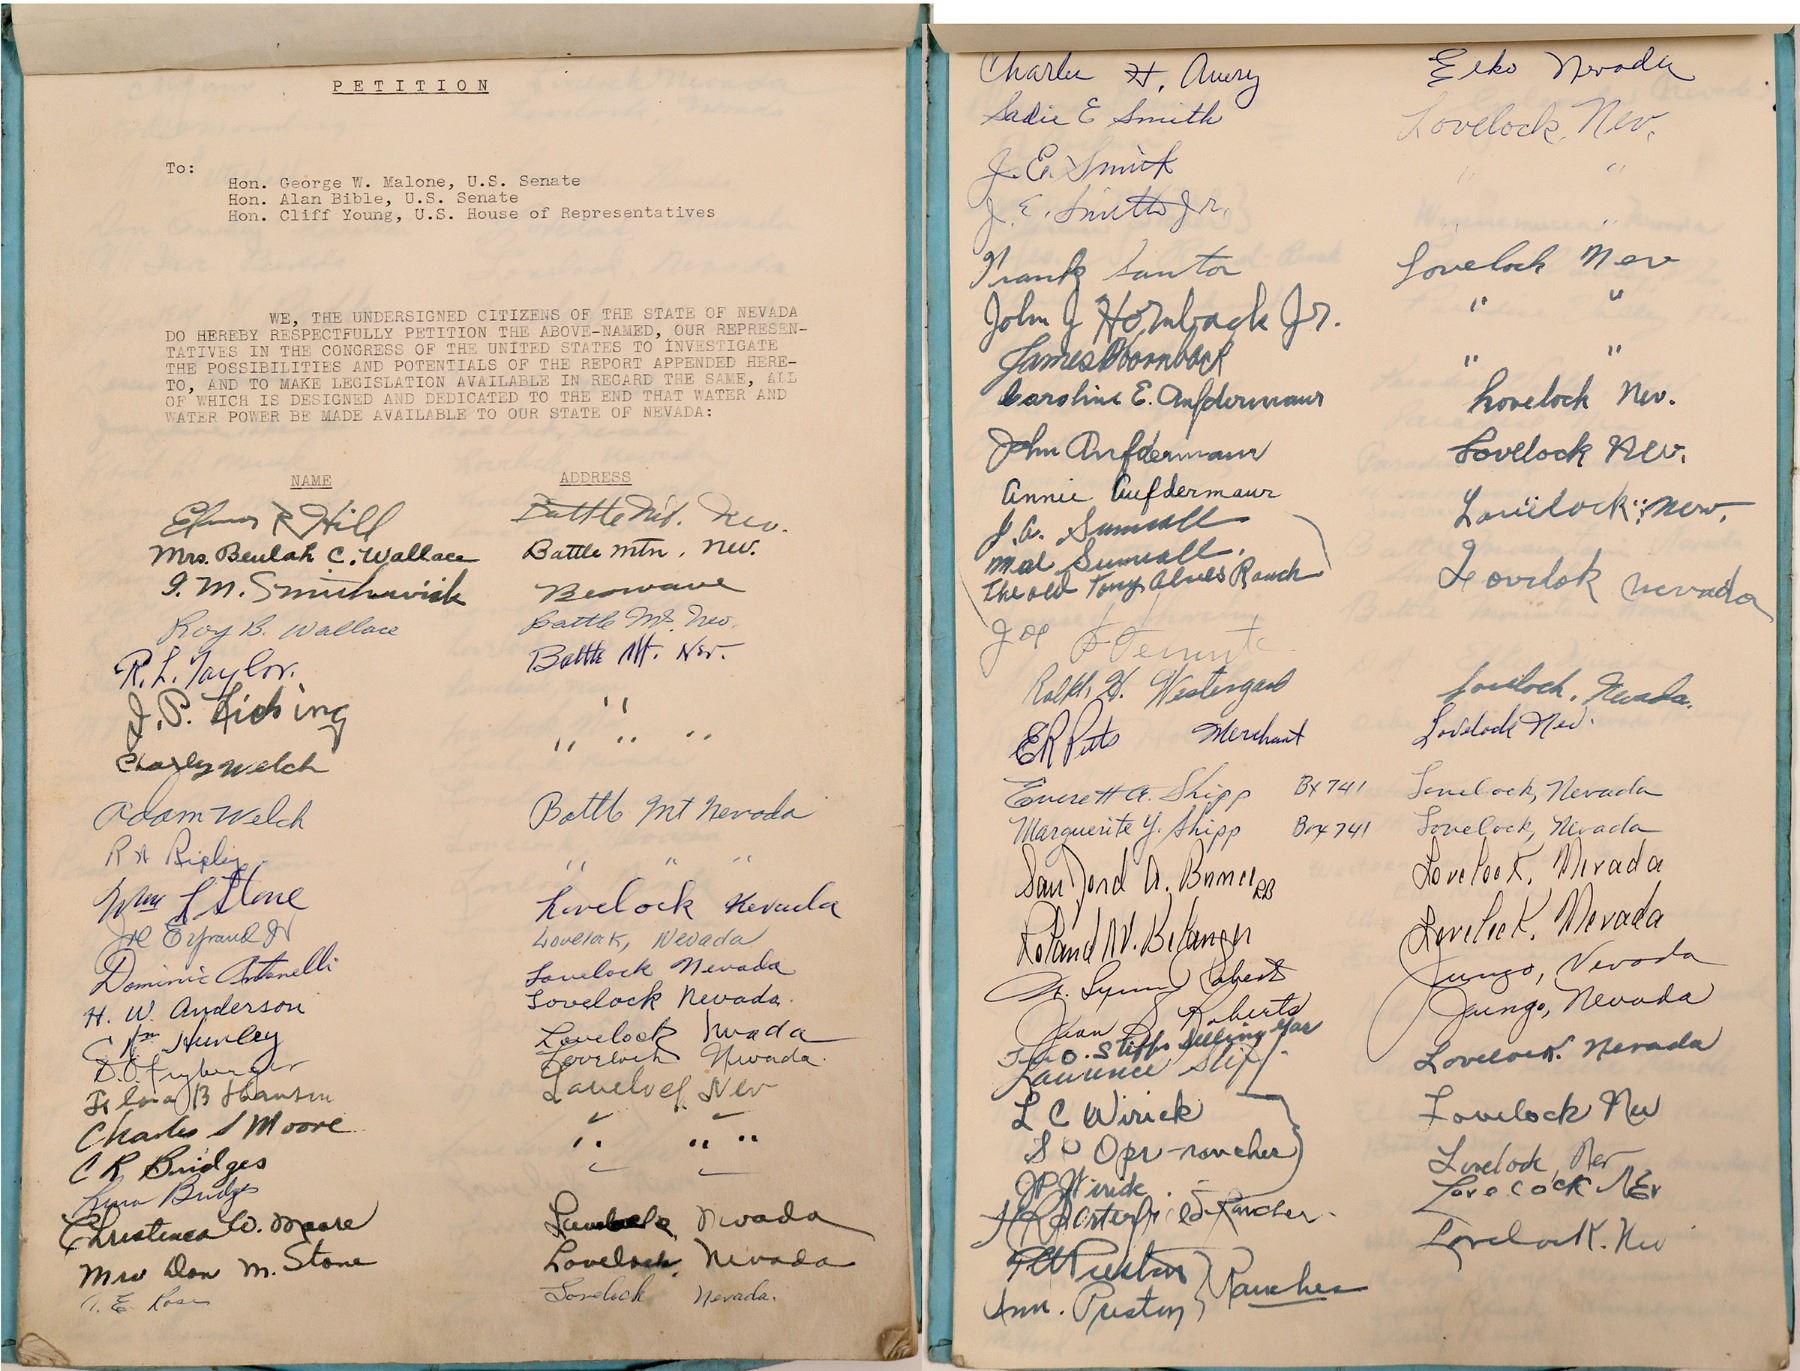 PETITION
To:
Hon. George W. Malone, U.S. Senate
Hon. Alan Bible, U.S. Senate
Hon. Cliff Young, U.S. House of Representatives
WE, THE UNDERSIGNED CITIZENS OF THE STATE OF NEVADA
DO HEREBY RESPECTFULLY PETITION THE ABOVE-NAMED, OUR REPRESEN-
TATIVES IN THE CONGRESS OF THE UNITED STATES TO INVESTIGATE
THE POSSIBILITIES AND POTENTIALS OF THE REPORT APPENDED HERE-
TO, AND TO MAKE LEGISLATION AVAILABLE IN REGARD THE SAME, ALL
OF WHICH IS DESIGNED AND DEDICATED TO THE END THAT WATER AND
WATER POWER BE MADE AVAILABLE TO OUR STATE OF NEVADA:
NAME ADDRESS
R Hill Battle Mt. Nev.
Mrs. Beulah C. Wallace Battle Mtn. Nev.
M. Smitherwick Beowawe
Roy B. Wallace Battle Mt. Nev.
R. L. Taylor. Battle Mt. Nev.
J. P. " "
Charley Welch " " "
Adam Welch Battle Mt Nevada
R A Ripley " " "
Wm L Stone Lovelock Nevada
Joe Jr Lovelock, Nevada
Dominic Antonelli Lovelock Nevada
H. W. Anderson Lovelock Nevada.
Hurley Lovelock Nevada
D. O. Fryberger Lovelock Nevada.
B Hansen Lovelock Nev
Charles S Moore " " "
C R Bridges " "
Bridges
Christenea W. Moore Lovelock, Nevada
Mrs Don M. Stone Lovelock, Nevada
E. Ross Lovelock Nevada.
Charles H. Avery Elko Nevada
Sadie E Smith Lovelock, Nev.
J. E. Smith " "
J. E. Smith Jr. "
Frank Santos Lovelock Nev
John J Hornback Jr. " "
James Hornback " "
Caroline E. Aufdermaur Lovelock Nev.
John Aufdermaur Lovelock Nev.
Annie Aufdermaur Lovelock New.
J. A. Sumrall
Mal Sumrall. Lovelok Nevada
The old Tony Alves Ranch
Joe
Ralph H. Westergard Lovelock, Nevada.
E R Pitts Merchant Lovelock Nev.
Everett A. Shipp Bx 741 Lovelock, Nevada
Marguerite Y. Shipp Box 741 Lovelock, Nevada
Sanford A. Lovelock, Nevada
Roland W. Belanger Lovelock, Nevada
Lynn Roberts Jungo, Nevada
Juan S Roberts Jungo, Nevada
Laurence Lovelock. Nevada
L C Wirick Lovelock Nev
Opr-rancher Lovelock, Nev
J P Wirick Lovelock Nev
Porterfield-Rancher. Lovelock. Nev
Preston
Ann. Preston Ranches